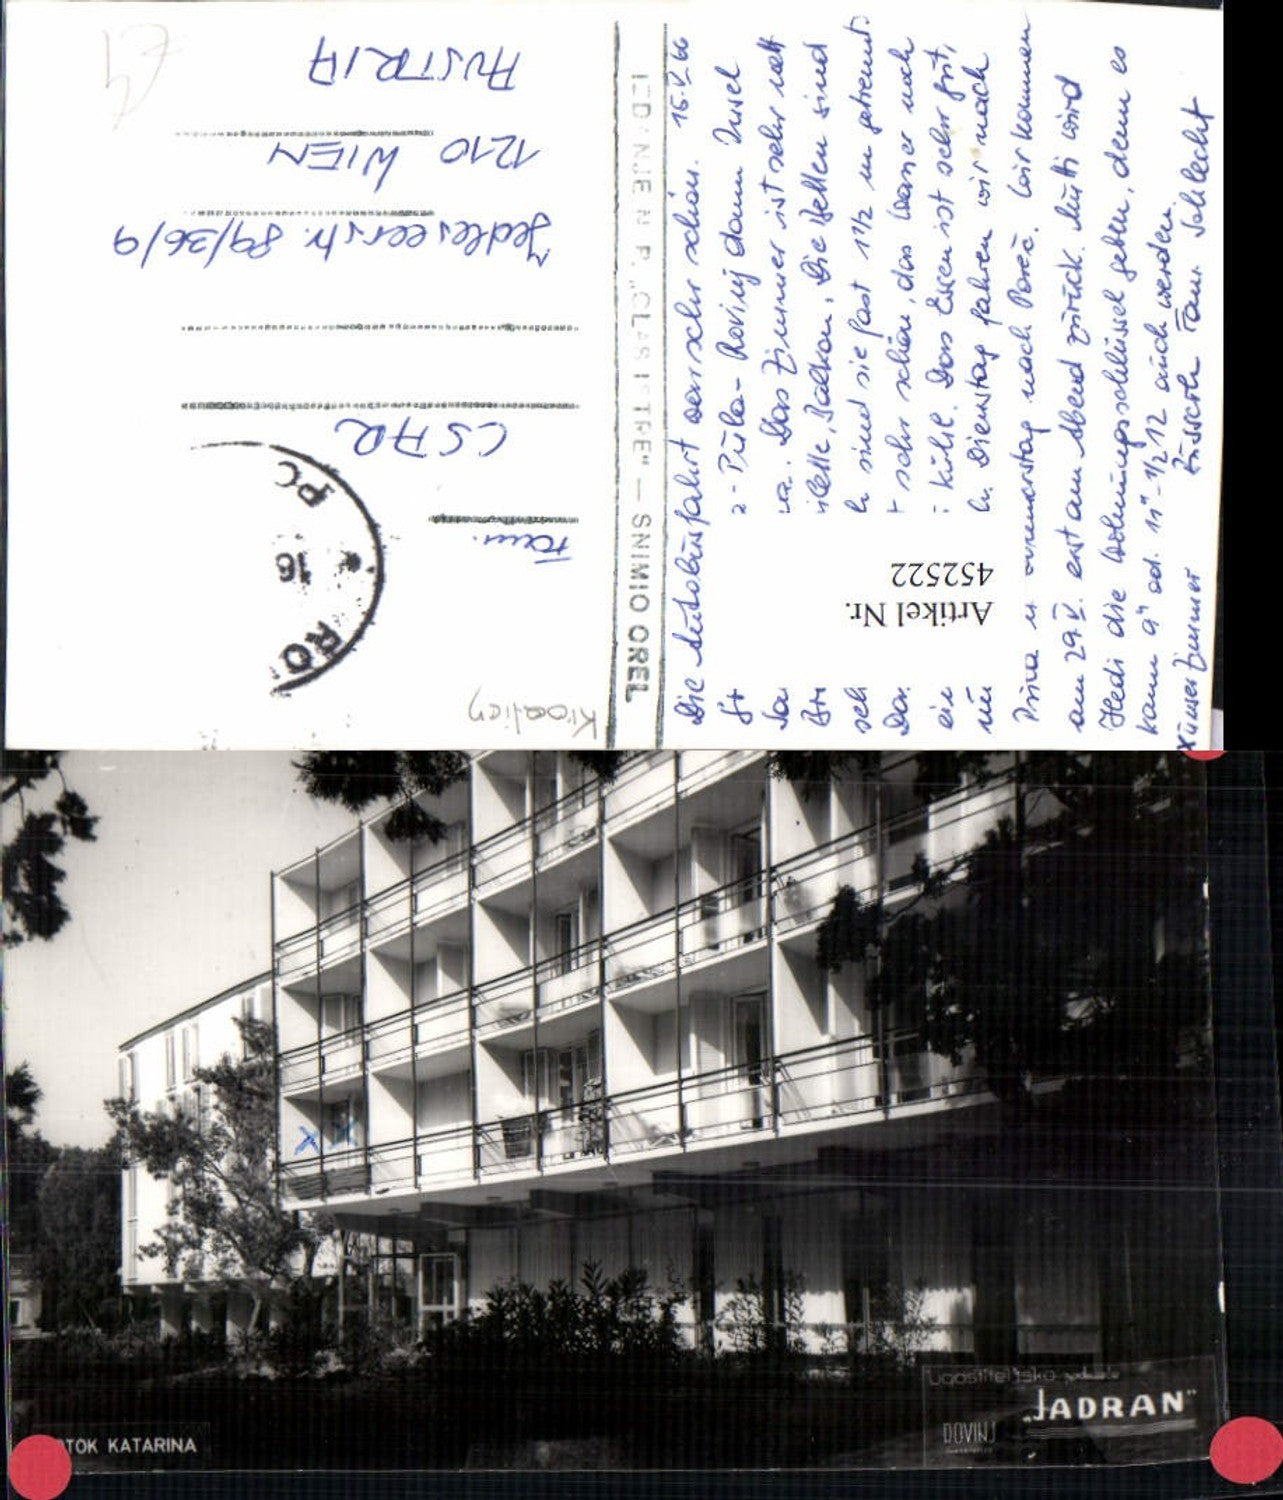 Die Autobusfahrt war sehr schön. 15.V.66
Pula - Rovinj dann Insel
Das Zimmer ist sehr nett
Balkon, Die Betten sind
sind sie fast 1 1/2 m getrennt
sehr schön, das Wasser noch
kühl. Das Essen ist sehr gut,
Dienstag fahren wir nach
nach Poreč. Wir kommen
am 29.V. erst am Abend zurück. Mutti wird
Hedi die Wohnungsschlüssel geben, denn es
kann 9h od. 11h - 1/2 12 auch werden.
Fam. Schlecht
xunser Zimmer
IZDANJE N. P. „CLASTITRE" — SNIMIO OREL
Fam.
CSAR
Jedleseerstr. 89/36/9
1210 WIEN
AUSTRIA
Kroatien
PC
16
RO
Artikel Nr.
452522
x x
OTOK KATARINA
Ugostiteljsko
„JADRAN"
ROVINJ